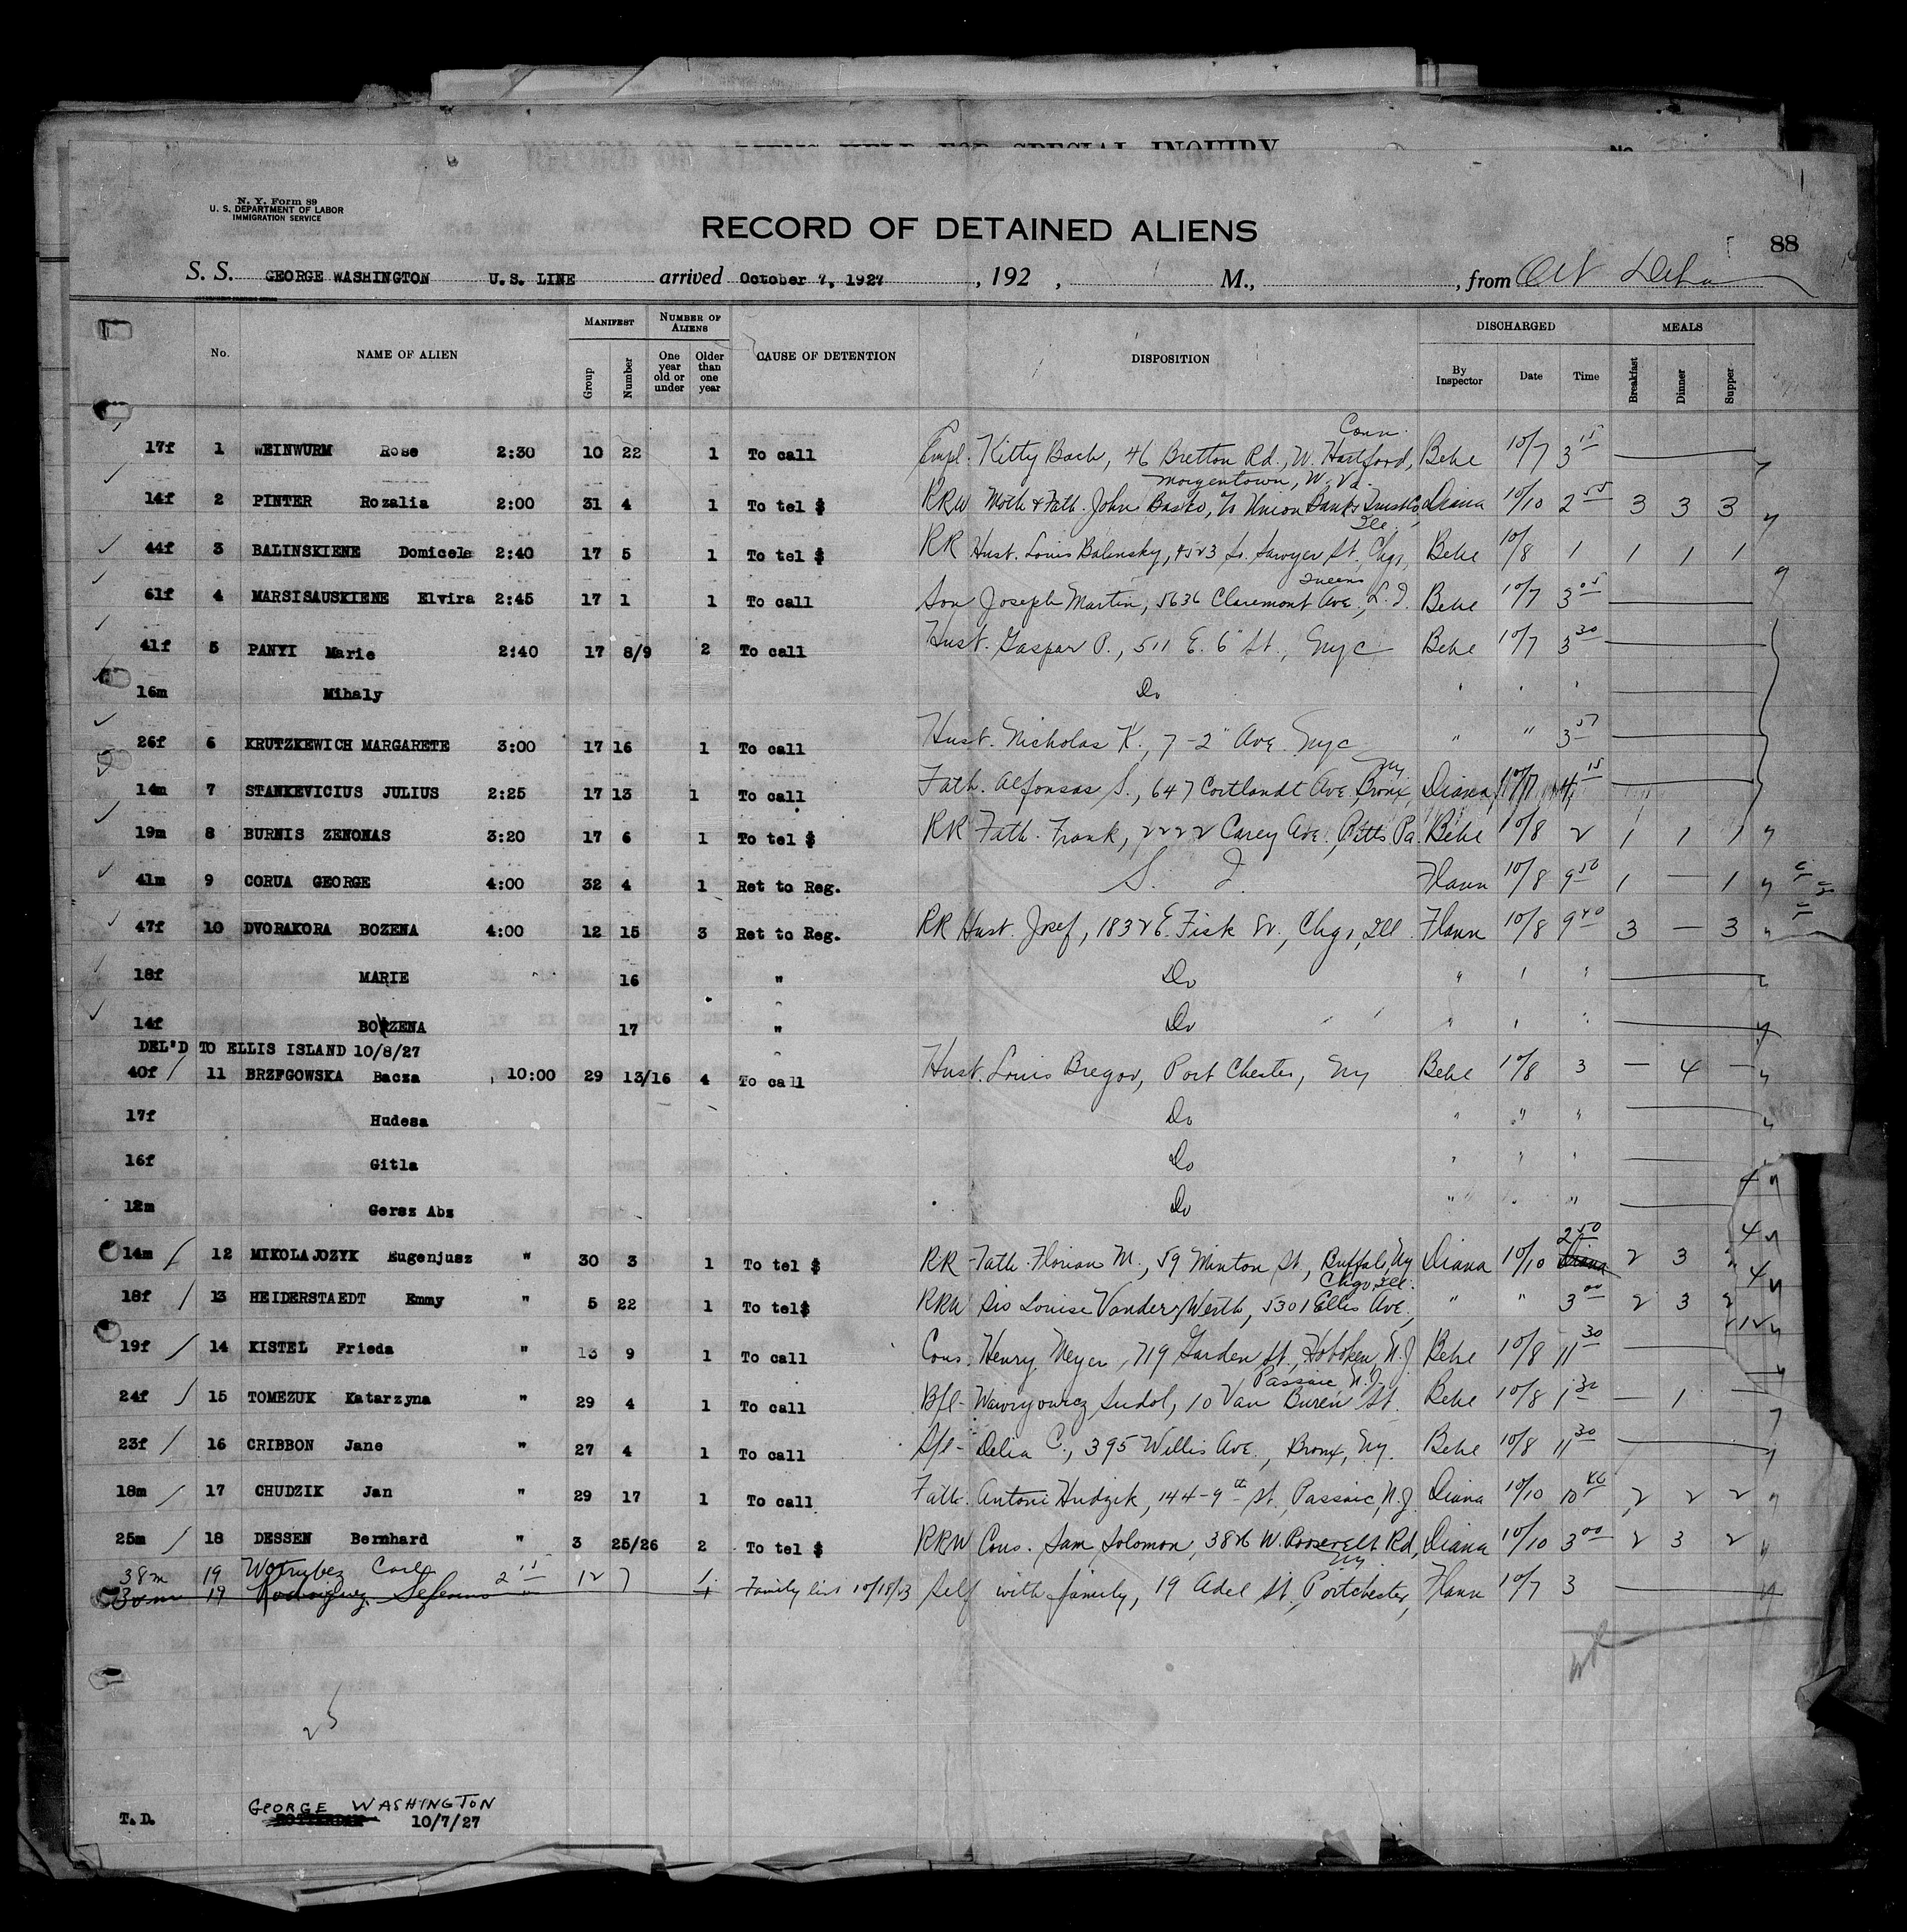 ALIENS HELD FOR SPECIAL INQUIRY No.
N. Y. Form 89
U. S. DEPARTMENT OF LABOR
IMMIGRATION SERVICE
RECORD OF DETAINED ALIENS
88
S. S. GEORGE WASHINGTON U.S. LINE arrived October 7, 1927, 192 , M., , from
No. NAME OF ALIEN MANIFEST Group Number NUMBER OF ALIENS One year old or under Older than one year CAUSE OF DETENTION DISPOSITION DISCHARGED By Inspector Date Time MEALS Breakfast Dinner Supper
Conn.
17f 1 WEINWURM Rose 2:30 10 22 1 To call Empl. Kitty Bach, 46 Bretton Rd., W. Hartford, Behe 10/7 3 15
Morgentown, W. Va.
14f 2 PINTER Rozalia 2:00 31 4 1 To tel $ RRW Moth & Fath. John Basko, % Union Bank & Trust Co Diana 10/10 2 55 3 3 3
Ill.
44f 3 BALINSKIENE Domicele 2:40 17 5 1 To tel $ RR Husb. Louis Balensky, 4523 So. Sawyer St., Chgo, Behe 10/8 1 1 1 1
Queens
61f 4 MARSISAUSKIENE Elvira 2:45 17 1 1 To call Son Joseph Martin, 5636 Claremont Ave., L.I. Behe 10/7 3 05
41f 5 PANYI Marie 2:40 17 8/9 2 To call Husb. Gaspar P., 511 E. 6" St., Nyc Behe 10/7 3 30
16m Mihaly Do " " "
26f 6 KRUTZKEWICH MARGARETE 3:00 17 16 1 To call Husb. Nicholas K., 7-2" Ave Nyc " " 3 57
Ny
14m 7 STANKEVICIUS JULIUS 2:25 17 13 1 To call Fath. Alfonsas S., 647 Cortlandt Ave, Bronx, Diana 10/7 4 15
19m 8 BURNIS ZENONAS 3:20 17 6 1 To tel $ RR Fath. Frank, 2222 Carey Ave., Pitts Pa. Behe 10/8 2 1 1 1
41m 9 CORUA GEORGE 4:00 32 4 1 Ret to Reg. S. I. Flann 10/8 9 50 1 — 1
47f 10 DVORAKORA BOZENA 4:00 12 15 3 Ret to Reg. RR Husb. Josef, 1832 E. Fisk St., Chgo, Ill. Flann 10/8 9 40 3 — 3
18f MARIE 16 " Do " " "
14f BOZENA 17 " Do " " "
DEL'D TO ELLIS ISLAND 10/8/27
40f 11 BRZFGOWSKA Bacza 10:00 29 13/16 4 To call Husb. Louis Bregov, Port Chester, Ny Behe 10/8 3 — 4 —
17f Hudesa Do " " "
16f Gitla Do " " "
12m Gersz Abz Do " " "
2 50
14m 12 MIKOLAJOZYK Eugenjusz " 30 3 1 To tel $ RR - Fath. Florian M., 59 Minton St., Buffalo, Ny Diana 10/10 Diana 2 3 "
Chgo, Ill.
18f 13 HEIDERSTAEDT Emmy " 5 22 1 To tel$ RRW Sis Louise Vander Werth, 5301 Ellis Ave., " " 3 00 2 3 2
19f 14 KISTEL Frieda " 13 9 1 To call Cous. Henry Meyer, 719 Garden St., Hoboken, N.J. Behe 10/8 11 30
Passaic N.J.
24f 15 TOMEZUK Katarzyna " 29 4 1 To call Bfl - Sudol, 10 Van Buren St. Behe 10/8 1 30 — 1 —
23f 16 CRIBBON Jane " 27 4 1 To call Sfl - Delia C., 395 Willis Ave., Bronx, Ny. Behe 10/8 11 30
18m 17 CHUDZIK Jan " 29 17 1 To call Fath. Antoni Hudzik, 144-9th St., Passaic, N.J. Diana 10/10 10 2 2 2
25m 18 DESSEN Bernhard " 3 25/26 2 To tel $ RRW Cous. Sam Solomon, 3826 W. Roosevelt Rd, Diana 10/10 3 00 2 3 2
38m 19 Wotrubez Carl 2 15 12 7 1
Ny
19 Family Self with family, 19 Adel St., Portchester, Flann 10/7 3
25
GEORGE WASHINGTON
T.D. ROTTERDAM 10/7/27